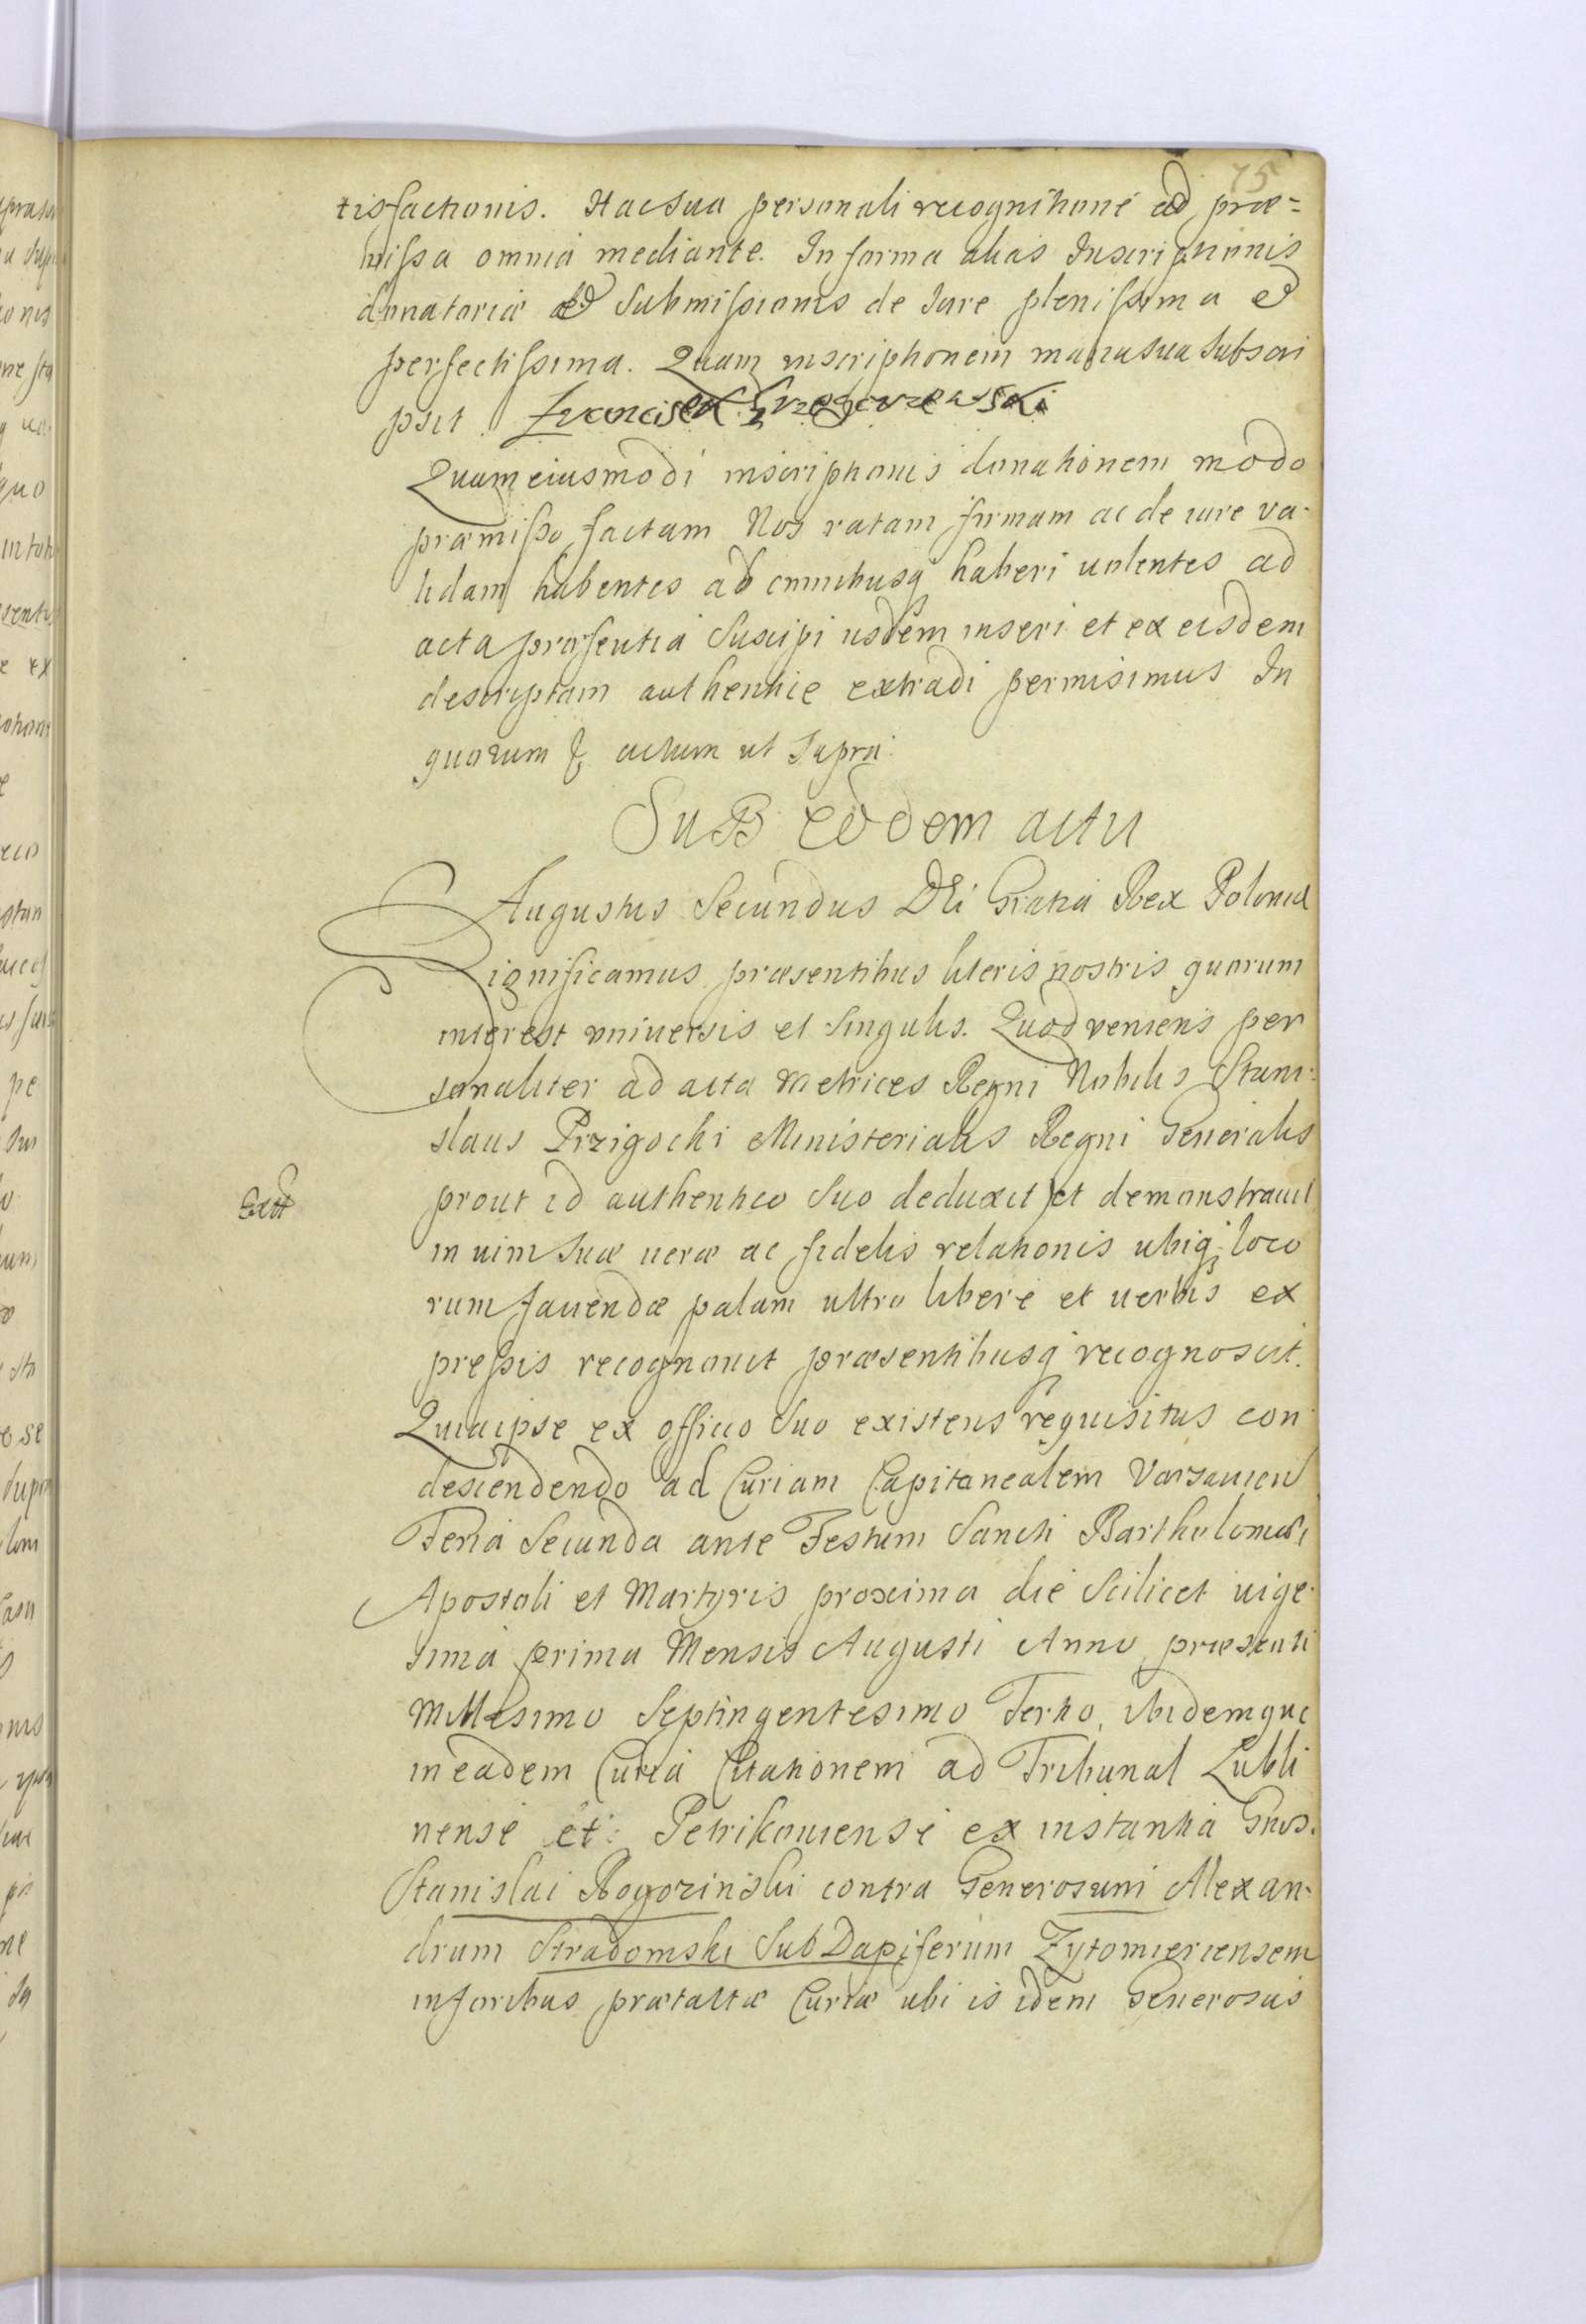 75
tisfactionis. Hac sua personali recognitione ad præ=
missa omnia mediante. In forma alias Inscriptionis
donatoriæ et submissionis de Iure plenissima et
perfectissima. Quam inscriptionem manu sua subscri
psit. Francisek Grzegorzewski
Quam eiusmodi inscriptionis donationem modo
præmisso factam Nos ratam firmam ac de iure va-
lidam habentes ab omnibusq haberi volentes ad
acta præsentia suscipi iisdem inseri et ex eisdem
descriptam authentice extradi permisimus In
quorum & actum ut supra.
SuB eodem actu
Augustus Secundus DEi Gratia Rex Poloniæ
Significamus præsentibus literis nostris quorum
interest universis et singulis. Quod veniens per
sonaliter ad acta Metrices Regni Nobilis Stani-
slaus Przigocki Ministerialis Regni Generalis
Extt
prout id authentico suo deduxit et demonstravit
in vim suæ veræ ac fidelis relationis ubiq; loco
rum favendæ palam ultro libere et verbis ex
pressis recognovit præsentibusq recognoscit.
Quia ipse ex officio suo existens requisitus con
descendendo ad Curiam Capitanealem Varsavien
Feria Secunda ante Festum Sancti Bartholomæi
Apostoli et Martyris proxima die scilicet vige-
sima prima Mensis Augusti Anno præsenti
Millesimo Septingentesimo Tertio, ibidemque
in eadem Curia Citationem ad Tribunal Lubli
nense et Petrikoviense ex instantia Gnos.
Stanislai Rogozinski contra Generosum Alexan-
drum Stradomski SubDapiferum Zytomieriensem
in foribus prætactæ Curiæ ubi is idem Generosus